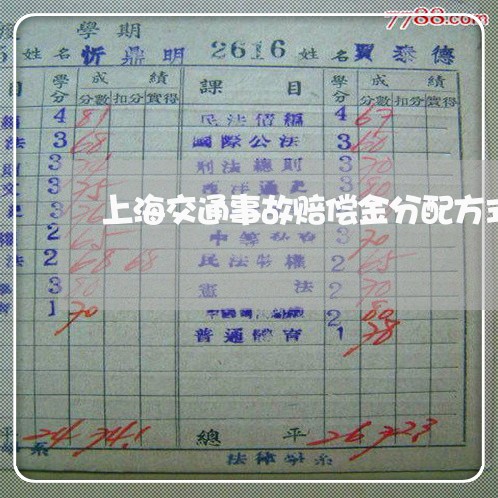 7788.com
學期
姓名 忻鼎明 2616 姓名 賈泰德
目 學分 成績 課目 學分 成績
分數 扣分 實得 分數 扣分 實得
4 81 民法債編 4 67
法 3 68 國際公法 3 60
3 刑法總則 3 70
3 75 3
上海交通事故赔偿金分配方式
2 65 3 70
法 2 68 68 民法物權 2 65
3 80 憲法 2 70
1 70 2 80
普通體育 1 78
平 24 74.1 總平 26 72.3
系 法律學系